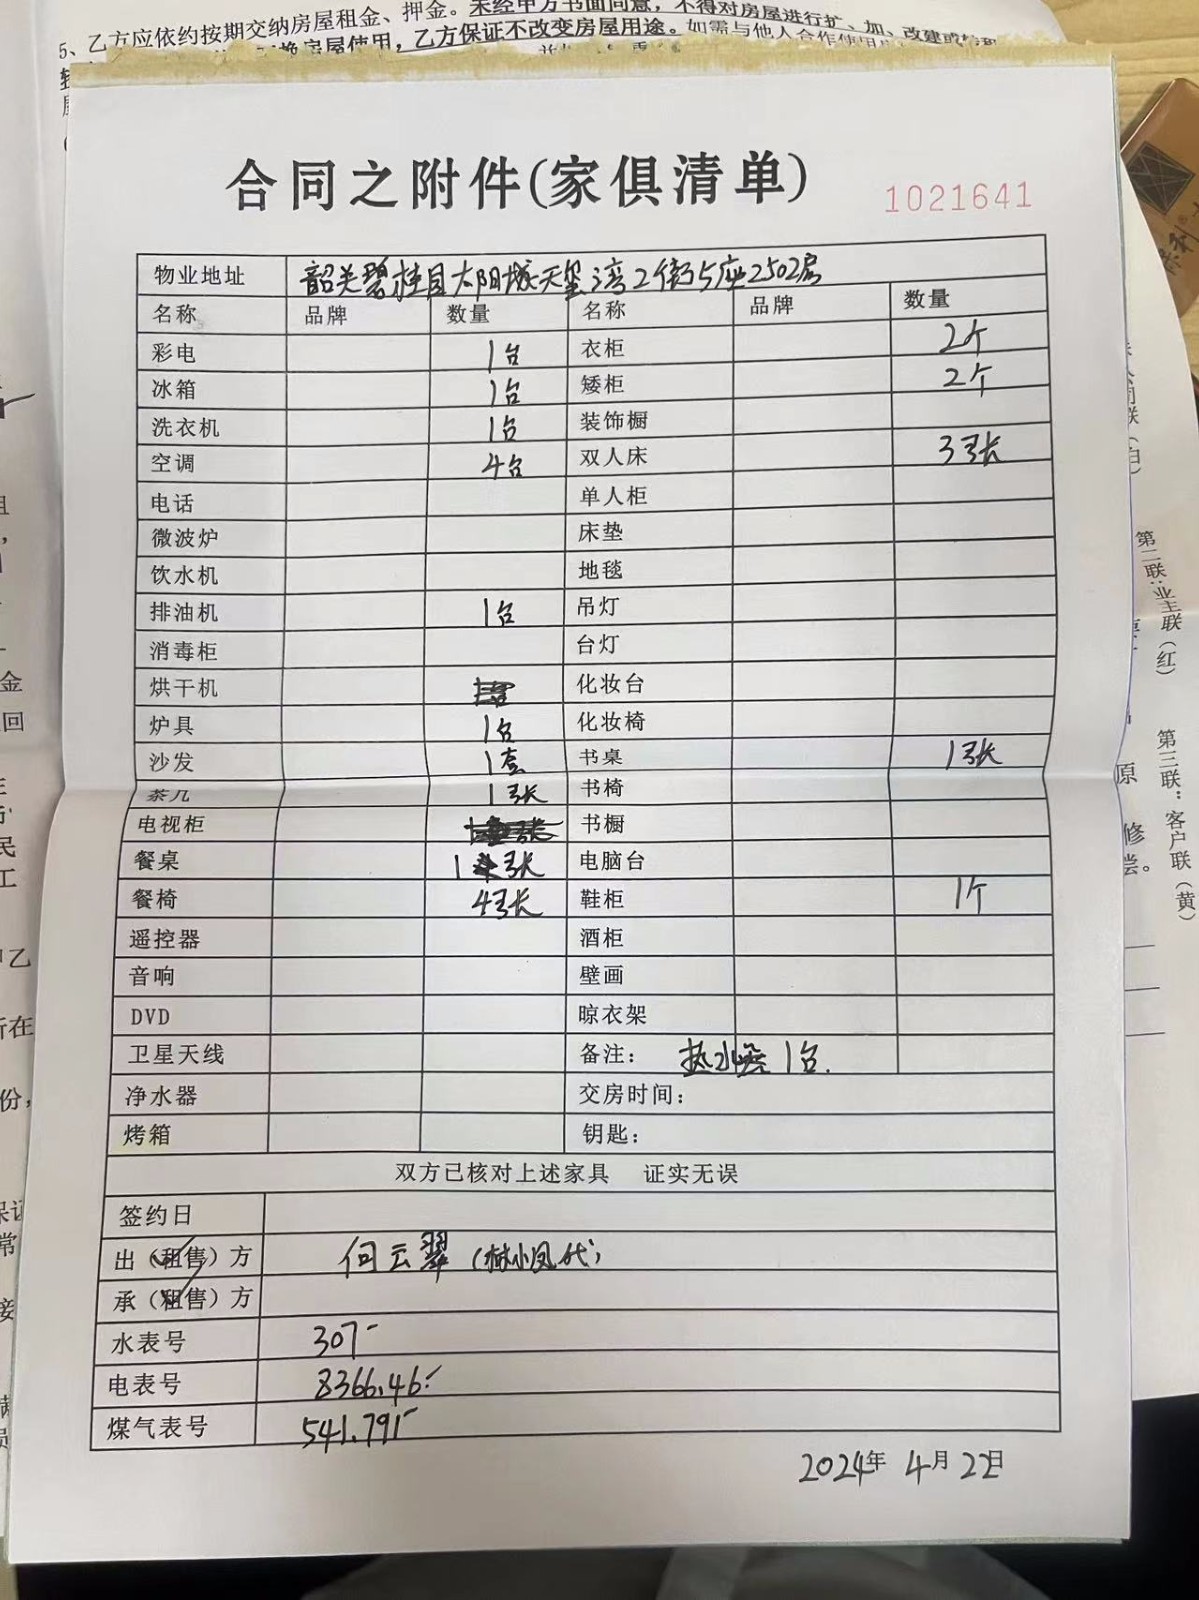 5、乙方应依约按期交纳房屋租金、押金。未经甲方书面同意，不得对房屋进行扩、加、改建或转租
换房屋使用，乙方保证不改变房屋用途。如需与他人合作使用
合同之附件(家俱清单)
1021641
物业地址 韶关碧桂园太阳城天玺湾2街5座2502房
名称 品牌 数量 名称 品牌 数量
彩电 1台 衣柜 2个
冰箱 1台 矮柜 2个
洗衣机 1台 装饰橱
空调 4台 双人床 3张
电话 单人柜
微波炉 床垫
饮水机 地毯
排油机 1台 吊灯
消毒柜 台灯
烘干机 化妆台
炉具 1台 化妆椅
沙发 1套 书桌 1张
茶几 1张 书椅
电视柜 书橱
餐桌 1张 电脑台
餐椅 4张 鞋柜 1个
遥控器 酒柜
音响 壁画
DVD 晾衣架
卫星天线 备注： 热水器 1台.
净水器 交房时间：
烤箱 钥匙：
双方已核对上述家具 证实无误
签约日
出（租售）方 何云翠（林小凤代）
承（租售）方
水表号 307
电表号 8366.46
煤气表号 541.791
2024年 4月 22日
第二联：业主联（红）
第三联：客户联（黄）